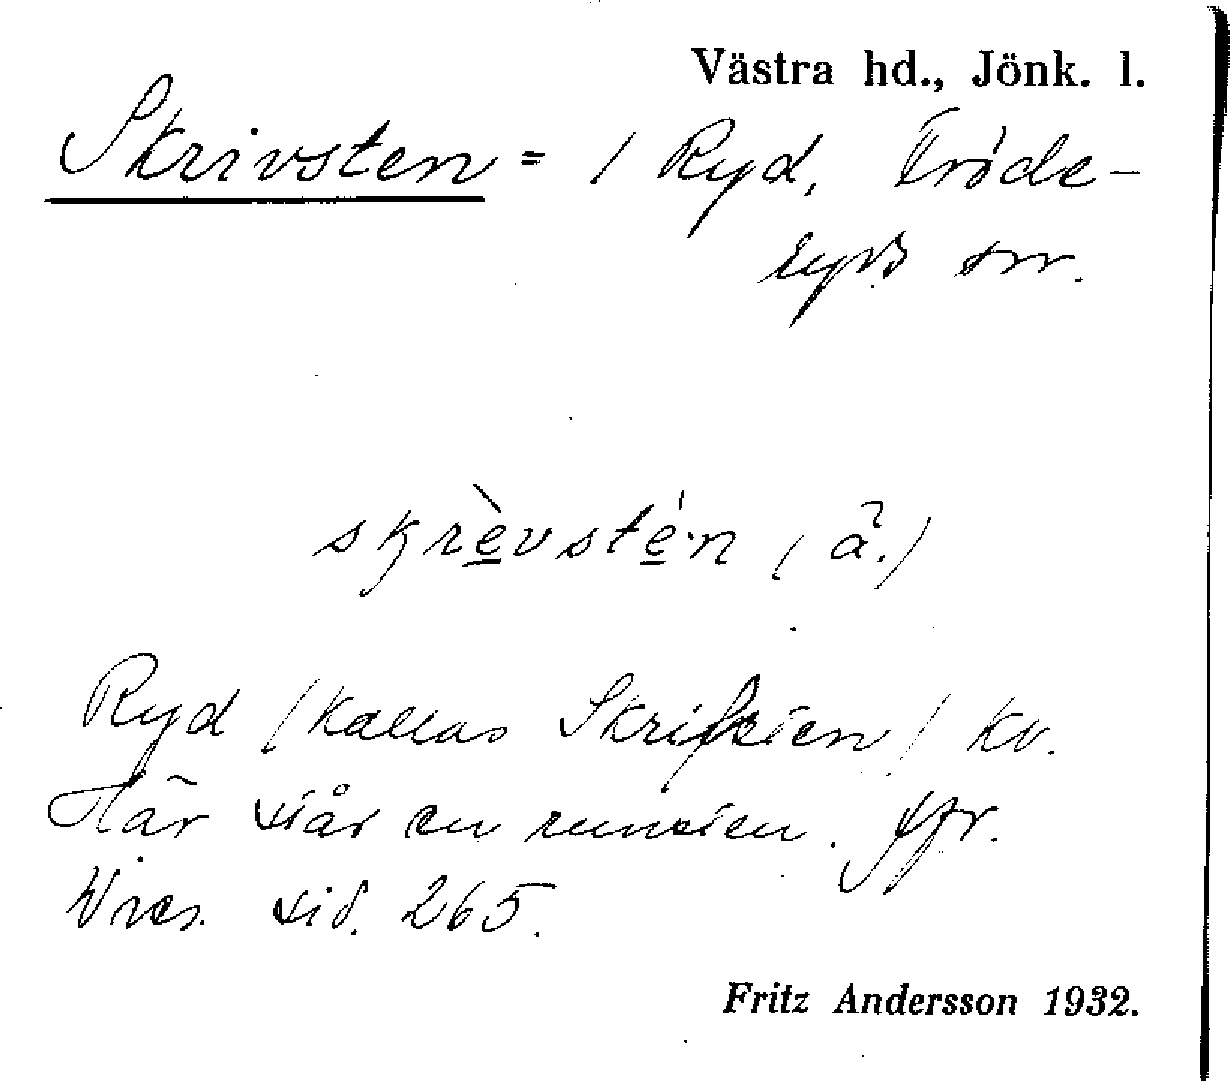 Västra hd., Jönk. l.
Skrivsten = 1 Ryd, Fröde-
ryds snr.
skrèvsté·n (ã.)
Ryd (kallas Skrifsten) kv.
Här står en runsten. Jfr.
Wies. sid. 265.
Fritz Andersson 1932.